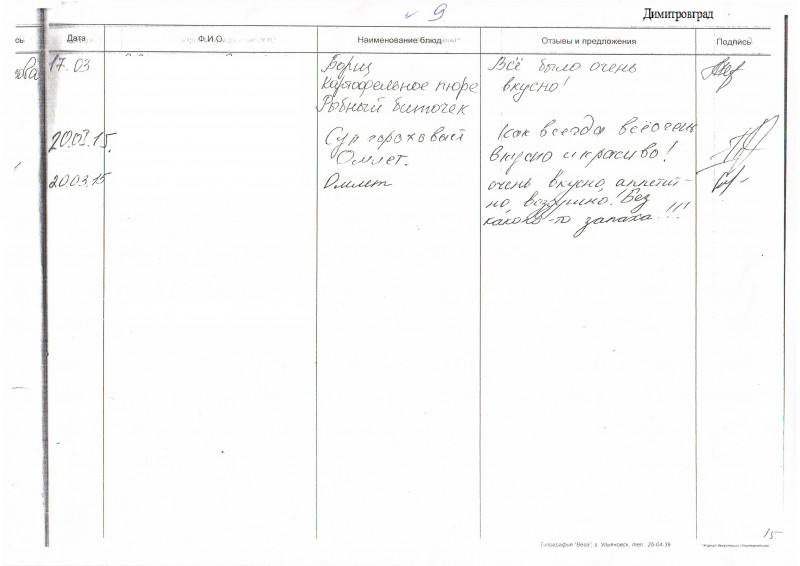 9
Димитровград
сь
Дата
Ф.И.О.
Наименование блюд
Отзывы и предложения
Подпись
17.03
Борщ
Картофельное пюре
Рыбный биточек
Всё было очень
вкусно!
20.03.15.
Суп гороховый
Омлет.
Как всегда всё очень
вкусно и красиво!
20.03.15
Омлет
очень вкусно, аппетит-
но, воздушно! Без
какого-то запаха!!!
15
Типография "Вега", г. Ульяновск, тел.: 26-04-39